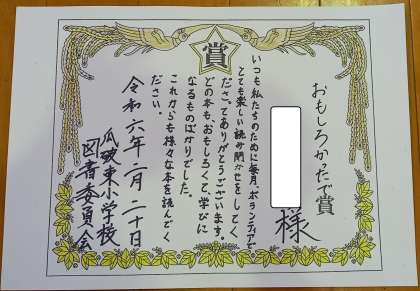 賞
おもしろかったで賞
様
いつも私たちのために毎月、ボランティアで
とても楽しい読み聞かせをしてく
ださってありがとうございます。
どの本も、おもしろくて、学びに
なるものばかりでした。
これからも様々な本を読んでく
ださい。
令和六年二月二十日
瓜破東小学校
図書委員会